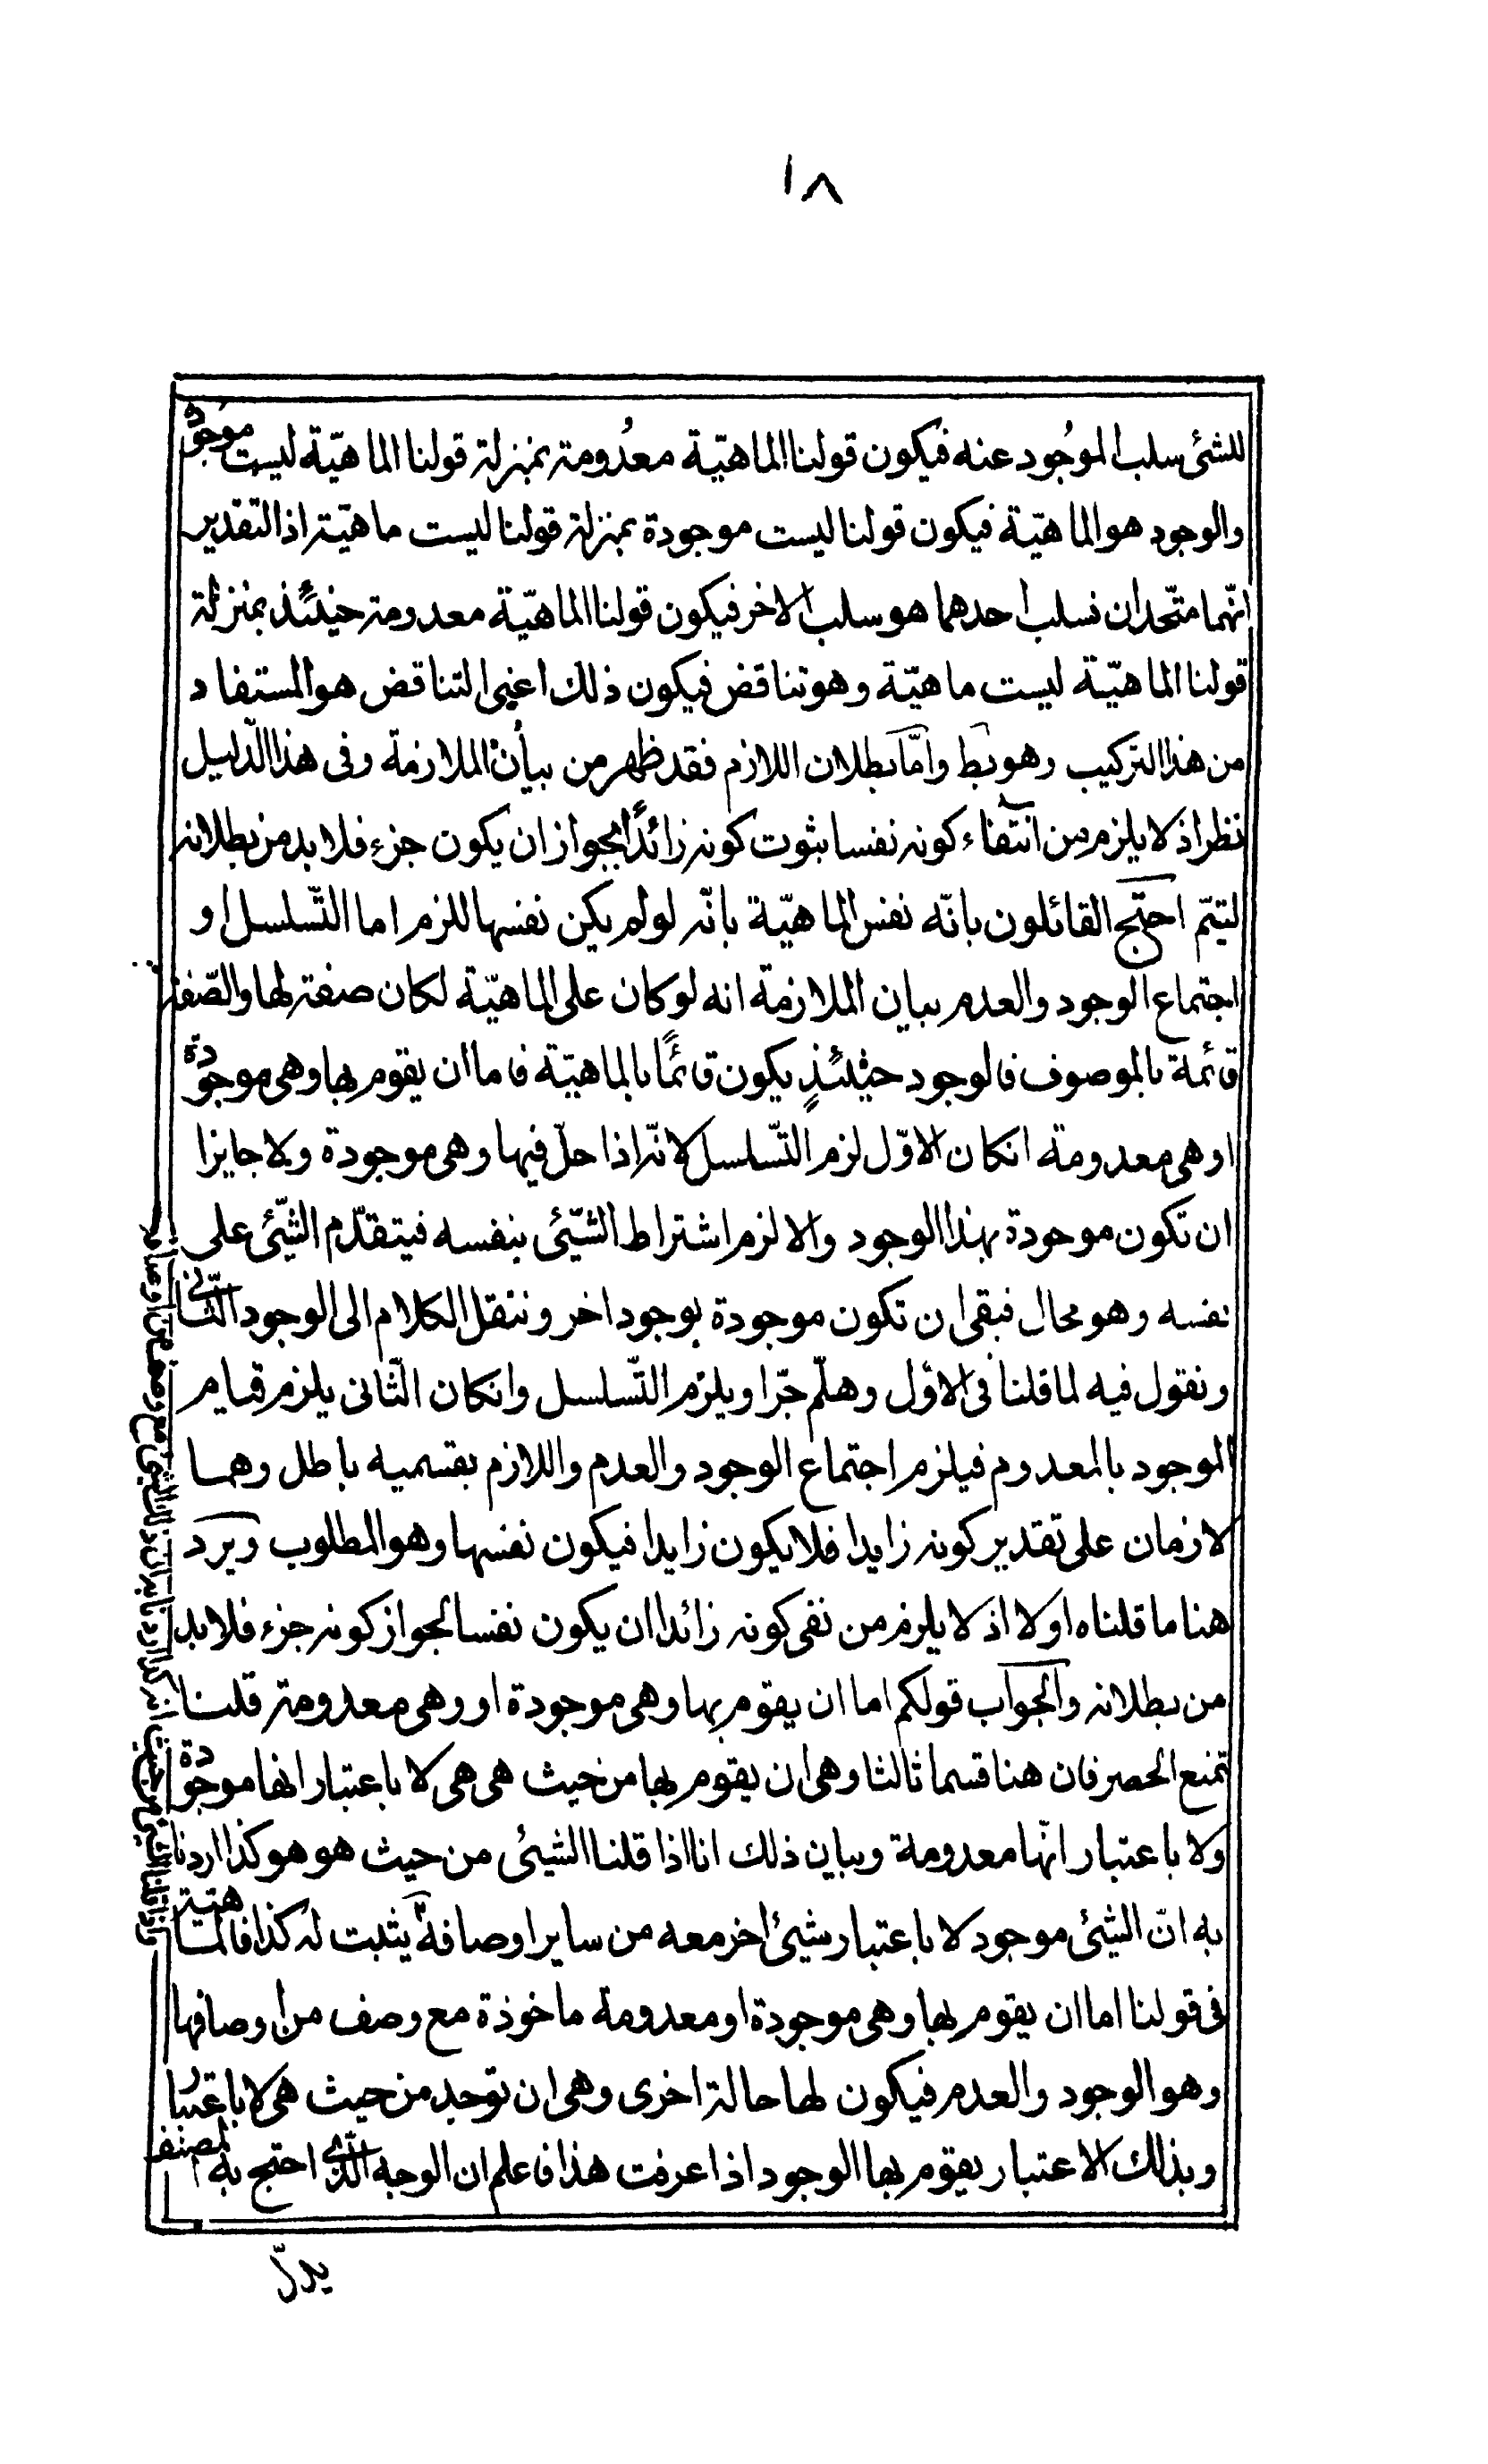 ١٨
للشئ سلب الموجود عنه فيكون قولنا الماهيّة معدومة بمنزلة قولنا الماهيّة ليست موجودة
والوجود هو الماهيّة فيكون قولنا ليست موجودة بمنزلة قولنا ليست ماهيّة اذ التقدير
انّهما متّحدان فسلب احدهما هو سلب الاخر فيكون قولنا الماهيّة معدومة حينئذ بمنزلة
قولنا الماهيّة ليست ماهيّة وهو تناقض فيكون ذلك اعنى التناقض هو المستفاد
من هذا التركيب وهو بط وامّا بطلان اللازم فقد ظهر من بيان الملازمة وفى هذا الدّليل
نظر اذ لا يلزم من انتفاء كونه نفسا ثبوت كونه زائدًا لجواز ان يكون جزء فلابد من بطلانه
ليتمّ احتج القائلون بانّه نفس الماهيّة بانّه لو لم يكن نفسها للزم اما التّسلسل او
اجتماع الوجود والعدم بيان الملازمة انه لو كان على الماهيّة لكان صفة لها والصّفة
قائمة بالموصوف فالوجود حينئذٍ يكون قائمًا بالماهيّة فاما ان يقوم بها وهى موجودة
او هى معدومة انكان الاوّل لزم التّسلسل لانّه اذا حلّ فيها وهى موجودة ولا جايزا
ان تكون موجودة بهذا الوجود والا لزم اشتراط الشّئى بنفسه فيتقدّم الشّئى على
نفسه وهو محال فبقى ان تكون موجودة بوجود اخر وننقل الكلام الى الوجود الثّانى
ونقول فيه لما قلنا فى الاوّل وهلّم جّرا ويلزم التّسلسل وانكان الثّانى يلزم قيام
الموجود بالمعدوم فيلزم اجتماع الوجود والعدم واللازم بقسميه باطل وهما
لازمان على تقدير كونه زايدا فلا يكون زايدا فيكون نفسها وهو المطلوب ويرد
هنا ما قلناه اولا اذ لا يلزم من نفى كونه زائدا ان يكون نفسا لجواز كونه جزء فلابد
من بطلانه والجواب قولكم اما ان يقوم بها وهى موجودة او وهى معدومة قلنا
نمنع الحصر فان هنا قسما ثالثا وهى ان يقوم بها من حيث هى هى لا باعتبار انها موجودة
ولا باعتبار انّها معدومة وبيان ذلك انا اذا قلنا الشيئى من حيث هو هو كذا اردنا
به انّ الشيئى موجود لا باعتبار شيئ اخر معه من ساير اوصافه يثبت له كذا فالماهيّة
فى قولنا اما ان يقوم بها وهى موجودة او معدومة ماخوذة مع وصف من اوصافها
وهو الوجود والعدم فيكون لها حالة اخرى وهى ان توجد من حيث هى لا باعتبار
وبذلك الاعتبار يقوم بها الوجود اذا عرفت هذا فاعلم ان الوجه الذى احتج به المصنف
يدلّ